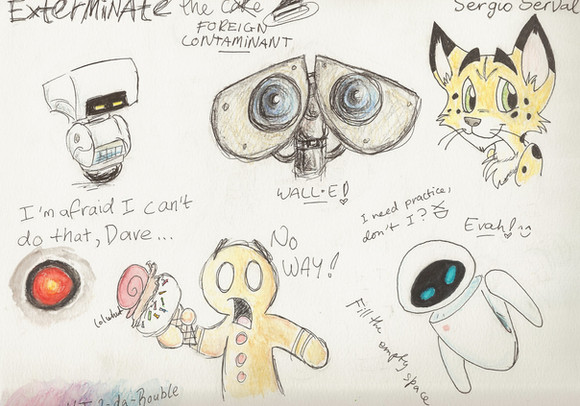 EXTERMINATE the cake
FOREIGN
CONTAMINANT
Sergio Serval
WALL·E!
I'm afraid I can't
do that, Dave...
I need practice,
don't I?
Evah!
NO
WAY!
lolwhut
Fill the empty space
-da-Bouble